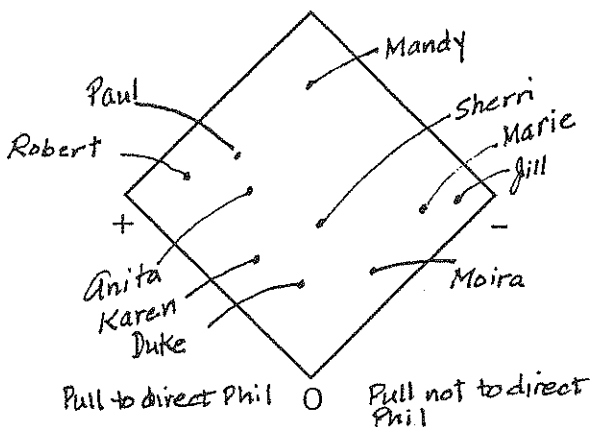 Mandy
Paul
Sherri
Robert
Marie
Jill
+
-
Anita
Karen
Duke
Moira
Pull to direct Phil
O
Pull not to direct
Phil